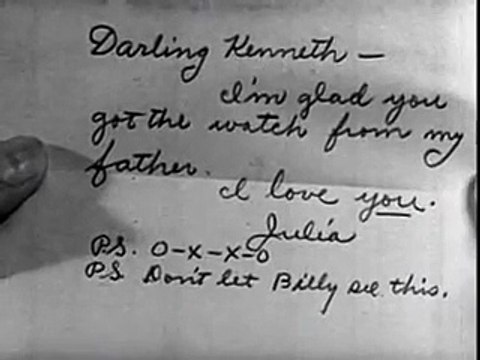 Darling Kenneth —
I'm glad you
got the watch from my
father.
I love you.
Julia
P.S. O-X-X-O
P.S. Don't let Billy see this.